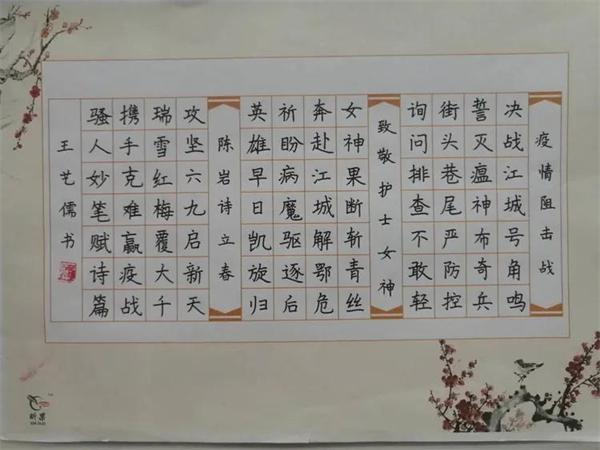 疫情阻击战
决战江城号角鸣
誓灭瘟神布奇兵
街头巷尾严防控
询问排查不敢轻
致敬护士女神
女神果断斩青丝
奔赴江城解鄂危
祈盼病魔驱逐后
英雄早日凯旋归
陈岩诗立春
攻坚六九启新天
瑞雪红梅覆大千
携手克难赢疫战
骚人妙笔赋诗篇
王艺儒书
昕墨